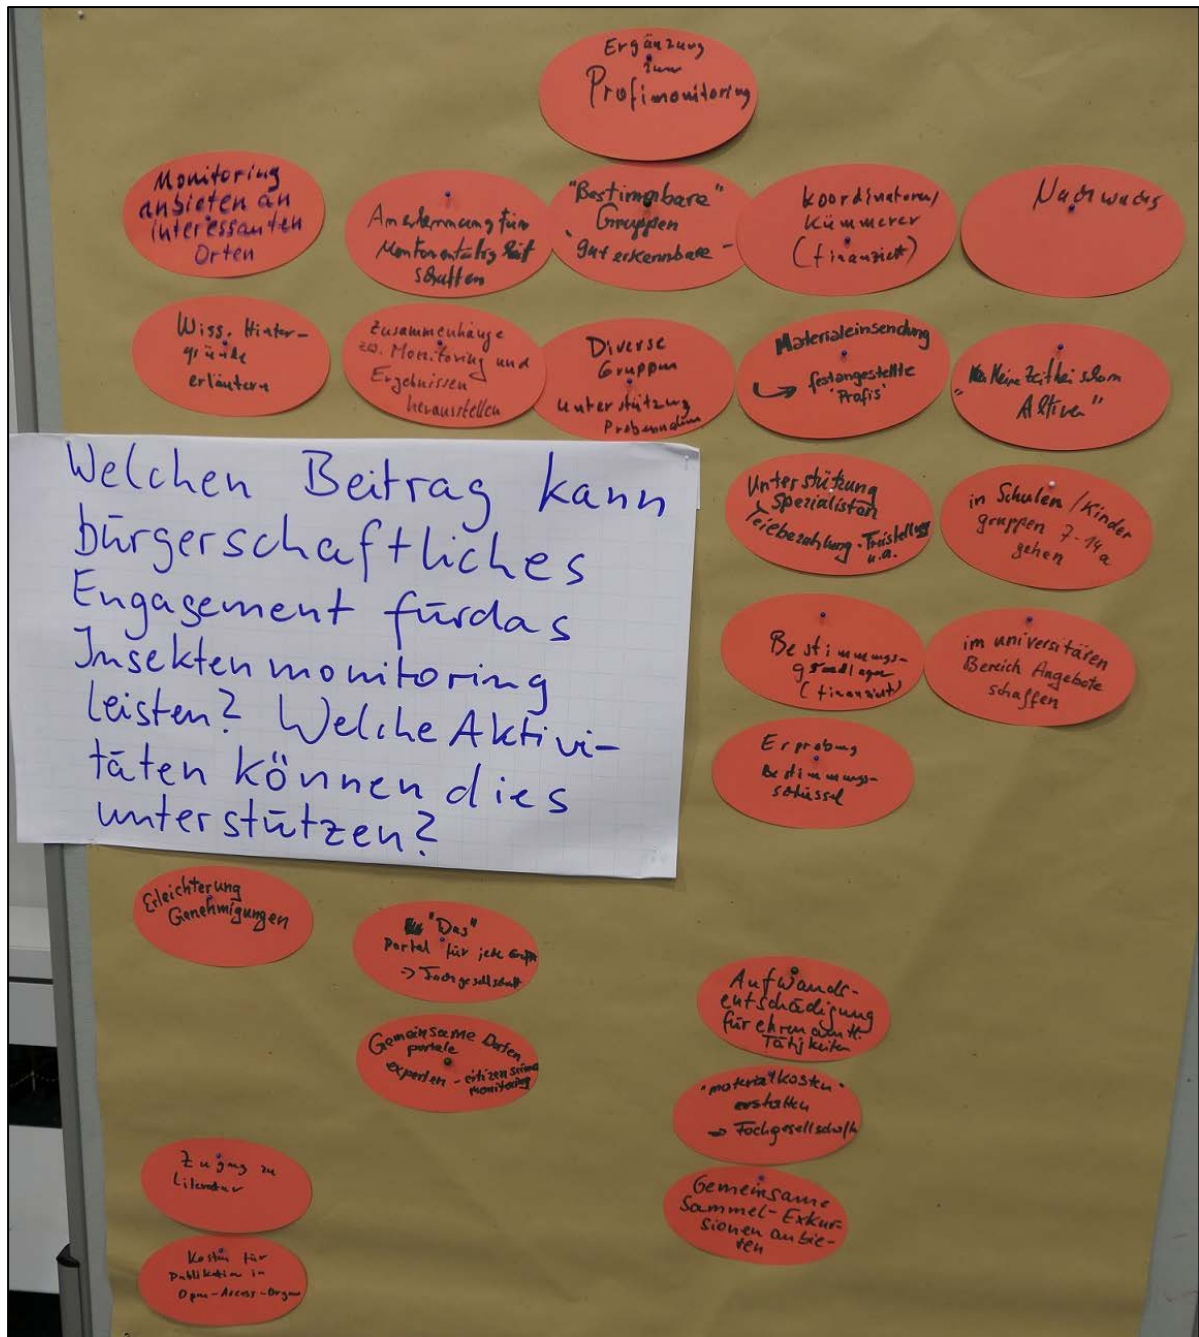 Ergänzung
zum
Profimonitoring
Monitoring
anbieten an
interessanten
Orten
Anerkennung für
schaffen
"Bestimmbare"
Gruppen
"gut erkennbare"
Koordinatoren/
Kümmerer
(finanziert)
Nachwuchs
Wiss. Hinter-
gründe
erläutern
Zusammenhänge
zw. Monitoring und
Ergebnissen
herausstellen
Diverse
Gruppen
Unterstützung
Materialeinsendung
festangestellte
"Profis"
Keine Zeit bei schon
Aktiven"
Welchen Beitrag kann
bürgerschaftliches
Engagement für das
Insektenmonitoring
leisten? Welche Aktivi-
täten können dies
unterstützen?
Unterstützung
Spezialisten
Teilbezahlung - Freistellung
u.a.
in Schulen / Kinder
gruppen 7-14 a
gehen
Bestimmungs-
grundlagen
(finanziert)
im universitären
Bereich Angebote
schaffen
Erprobung
Bestimmungs-
schlüssel
Erleichterung
Genehmigungen
"Das"
Portal für jede Gruppe
-> Fachgesellschaft
Gemeinsame Daten
portale
experten - citizen science
monitoring
Aufwands-
entschädigung
für ehrenamtl.
Tätigkeiten
"materialkosten"
erstatten
-> Fachgesellschaft
Zugang zu
Literatur
Gemeinsame
Sammel-Exkur-
sionen anbie-
ten
Kosten für
Publikation in
Open-Access-Organ